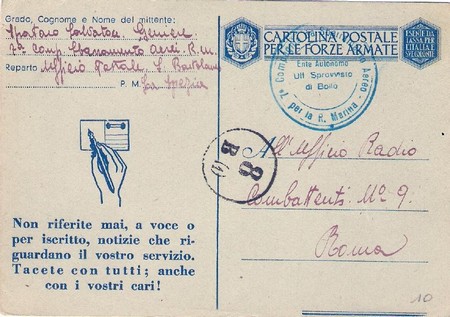 Grado, Cognome e Nome del mittente:
Spataro Salvatore Geniere
2ª Comp. Sbarramento Aereo R.M.
Reparto Ufficio Postale S. Bartolomeo
P. M. La Spezia
CARTOLINA POSTALE
PER LE FORZE ARMATE
ESENTE DA
TASSA PER
L'ITALIA E
Aereo
Ente Autonomo
Uff Sprovvisto
di Bollo
per la R. Marina
8
B (1)
All'Ufficio Radio
Combattenti Nº 9.
Roma
Non riferite mai, a voce o
per iscritto, notizie che ri-
guardano il vostro servizio.
Tacete con tutti; anche
con i vostri cari!
10